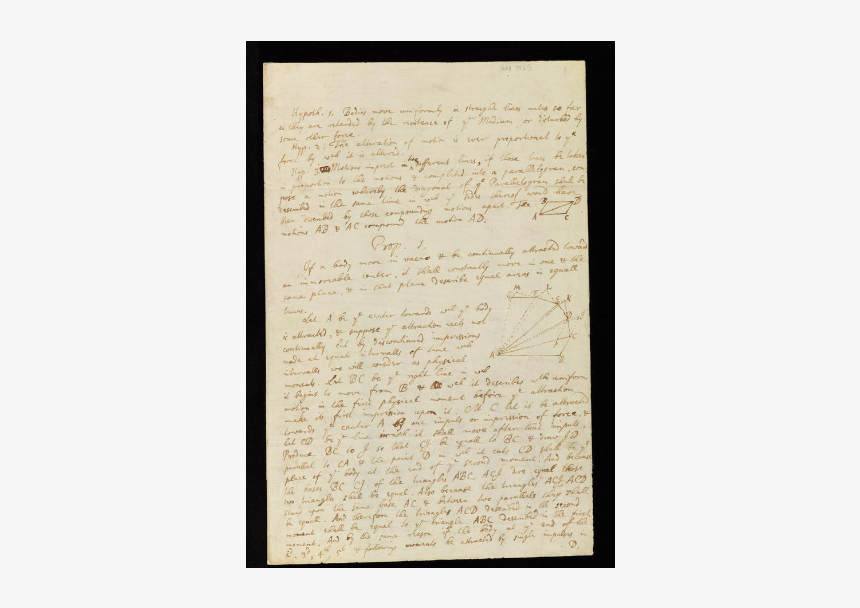 Hypoth. 1. Bodies move uniformly in straight lines unless so far
as they are retarded by the resistance of ye Medium or disturbed by
some other force.
Hyp. 2. The alteration of motion is ever proportional to ye
force by wch it is altered.
Hyp. 3. Motions imprest in two different lines, if those lines be taken
in proportion to the motions & completed into a parallelogram, com
pose a motion whereby the diagonal of ye Parallelogram shall be
described in the same time in wch ye sides thereof would have
been described by those compounding motions apart. The
motions AB & AC compound the motion AD.
B D
A C
Prop. 1.
If a body move in vacuo & be continually attracted toward
an immoveable center, it shall constantly move in one & the
same plane, & in that plane describe equal areas in equall
times.
Let A be ye center towards wch ye body
is attracted, & suppose ye attraction acts not
continually but by discontinued impressions
made at equal intervalls of time wch
intervalls we will consider as physical
moments. Let BC be ye right line in wch
it begins to move from B & wch it describes with uniform
motion in the first physical moment before ye attraction
make its first impression upon it. At C let it be attracted
towards ye center A by one impuls or impression of force, &
let CD be ye line in wch it shall move after that impuls.
Produce BC to I so that CI be equall to BC & draw ID
parallel to CA & the point D in wch it cuts CD shall be ye
place of ye body at the end of ye second moment. And because
the bases BC CI of the triangles ABC, ACI are equal those
two triangles shall be equal. Also because the triangles ACI, ACD
stand upon the same base AC & between two parallels they shall
be equall. And therefore the triangle ACD described in the second
moment shall be equal to ye triangle ABC described in the first
moment. And by the same reason if the body at ye end of the
2d, 3d, 4th, 5t & following moments be attracted by single impulses in
D,